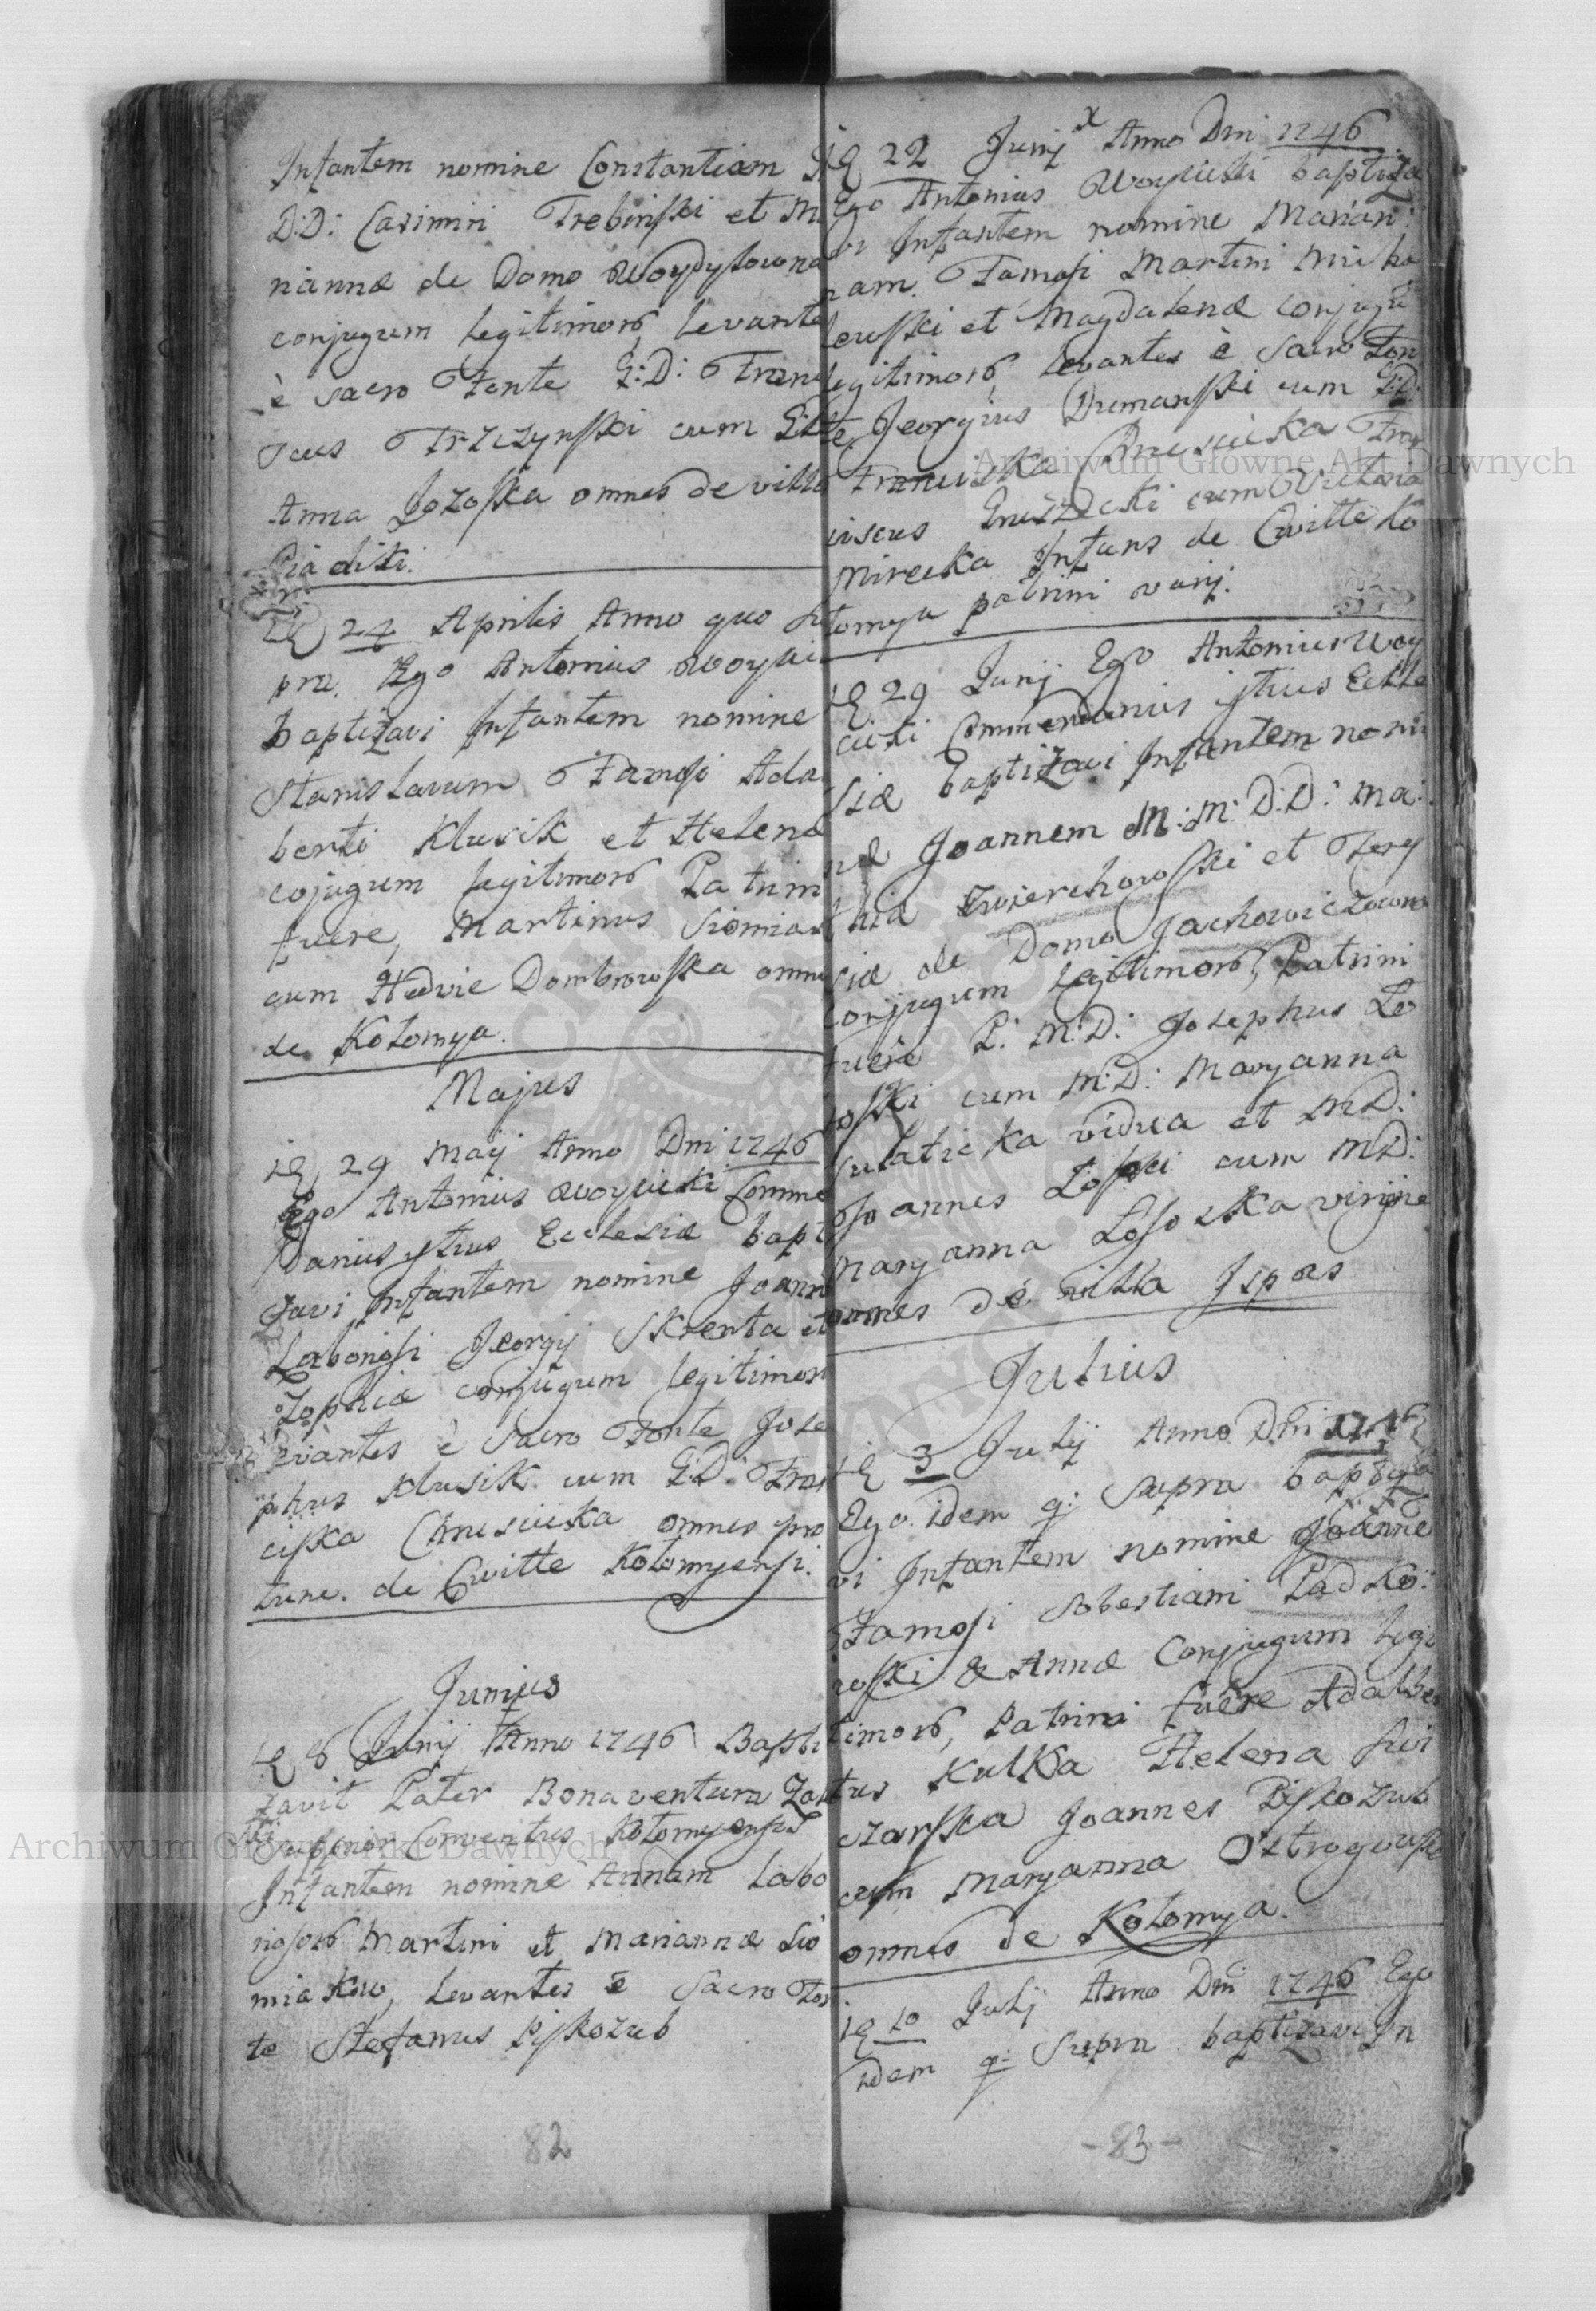 Infantem nomine Constantiam
D:D: Casimiri Trebinski et M
riannæ de Domo Woydyłowna
conjugum legitimorū, levante
è sacro Fonte G:D: Franci
scus Trzczynski cum
Anna Łozoska omnes de villa
Piadiki.
24 Aprilis Anno quo su
pra. Ego Antonius Woyci
baptizavi Infantem nomine
Stanislavum Famosi Adal
berti Klusik et Helenæ
cojugum legitimorū Patrini
fuere, Martinus Siomiak
cum Hedvie Dombrowska omnes
de Kołomya.
Majus
29 Maij Anno Dni 1746
Ego Antonius Woycicki Comme
danius ystius Ecclesiæ bapt
zavi Infantem nomine Joann
Laboriosi Jeorgij Skrenta et
Zophiæ conjugum legitimorū
evantes è Sacro Fonte Jose
phus Klusik. cum G:D: Fran
ciska Chruscicka omnes pro
tunc. de Civitte Kołomyensi.
Junius
8 Junij Anno 1746 Bapti
zavit Pater Bonaventura
Superior Conventus Kołomyensis
Infantem nomine Annam Labo
riosorū Martini et Mariannæ Sio
miakow, Levantes è Sacro Fon
te Stefanus Piskozub
82
22 Junij x Anno Dni 1746
Ego Antonius Woycicki baptiza
vi Infantem nomine Marian:
nam. Famosi Martini Micha
leuski et Magdalenæ conjugū
legitimorū, levantes è Sacro Fon
te, Jeorgius Dumanski cum G:D:
Franciska Chruscicka Fran
ciscus Gruszecki cum Victoria
Mirecka Infans de Civitte Ko
łomya patrini varij.
29 Junij Ego Antonius Woy
cicki Commendanius ystius Eccle
siæ baptizavi Infantem nomi
ne Joannem M:M:D:D: Ma:
thiæ Zwierchowski et Tere
siæ de Domo Jachowiczowna
conjugum legitimorū, Patrini
fuere P: M:D: Josephus Ło
soski cum M:D: Maryanna
Sulaticka vidua et M:D:
Joannes Łoski cum M:D:
Maryanna Łososka virgine
omnes de villa Ispas
Julius
3 Julij Anno Dni 1746
Ego idem q: Supra baptiza
vi Infantem nomine Joanne
Famosi Sobestiani Padko:
roski & Annæ Conjugum legi
timorū, Patrini fuere Adalber
tus Kulka Helena
czarska Joannes Piskozub
cum Maryanna Ostrogouska
omnes de Kołomya.
10 Julij Anno Dni 1746 Ego
idem q: Supra baptizavi In
- 83 -
Archiwum Główne Akt Dawnych
Archiwum Główne Akt Dawnych